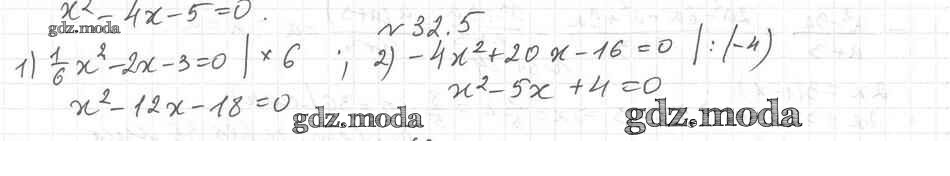 x² - 4x - 5 = 0.
gdz.moda
№ 32.5
1) 1/6 x² - 2x - 3 = 0 | × 6 ; 2) - 4x² + 20x - 16 = 0 | : (-4)
x² - 12x - 18 = 0
x² - 5x + 4 = 0
gdz.moda
gdz.moda